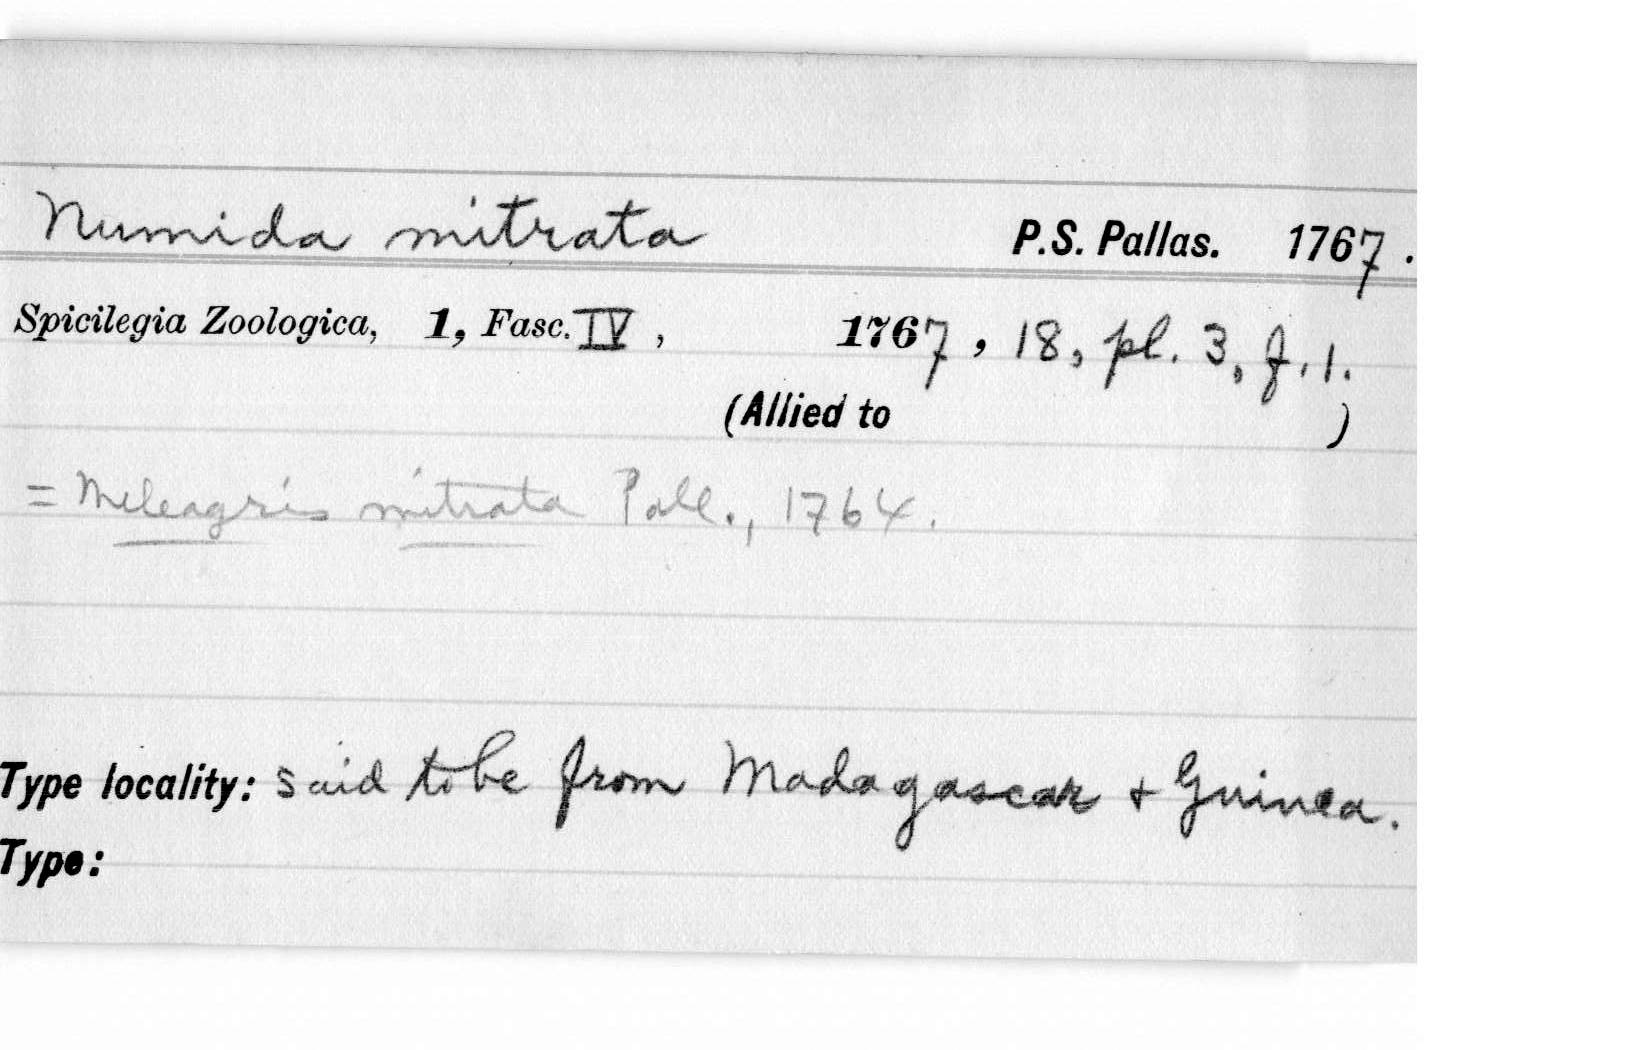 Numida mitrata P.S. Pallas. 1767.
Spicilegia Zoologica, 1, Fasc. IV, 1767, 18, pl. 3, f. 1.
(Allied to )
= Meleagris mitrata Pall., 1764.
Type locality: said to be from Madagascar + Guinea.
Type: